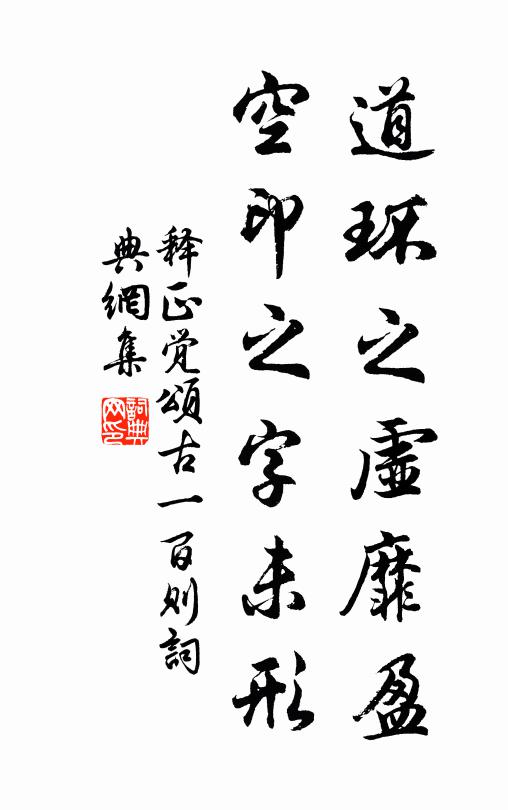 道环之虚靡盈
空印之字未形
释正觉颂古一百则詞
典網集
詞典网印